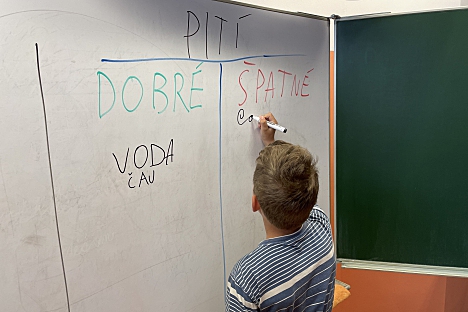 PITÍ
DOBRÉ
ŠPATNÉ
VODA
ČAU